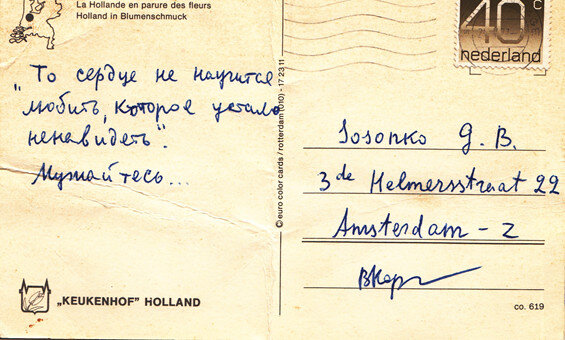 La Hollande en parure des fleurs
Holland in Blumenschmuck
„То сердце не научится
любить, которое устало
ненавидеть".
Мужайтесь...
„KEUKENHOF" HOLLAND
© euro color cards / rotterdam (010) - 17 23 11
40 c
nederland
Sosonko G. B.
3de Helmersstraat 22
Amsterdam - Z
co. 619